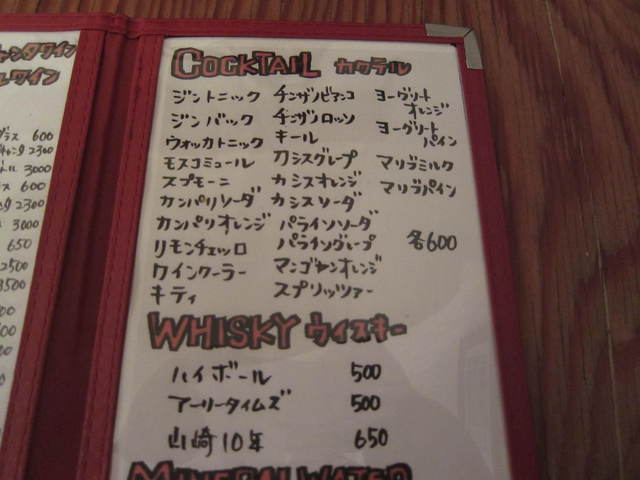 ャンタワイン
ルワイン
グラス 600
キャンタ 2300
トル 3000
ス 600
ンタ 2300
3000
650
2500
3500
COCKTAIL カクテル
ジントニック
ジンバック
ウォッカトニック
モスコミュール
スプモーニ
カンパリソーダ
カンパリオレンジ
リモンチェッロ
ワインクーラー
キティ
チンザノビアンコ
チンザノロッソ
キール
カシスグレープ
カシスオレンジ
カシスソーダ
パライソソーダ
パライソグレープ
マンゴヤンオレンジ
スプリッツァー
ヨーグリート
オレンジ
ヨーグリート
パイン
マリブミルク
マリブパイン
各600
WHISKY ウィスキー
ハイボール 500
アーリータイムズ 500
山崎10年 650
MINERAL WATER